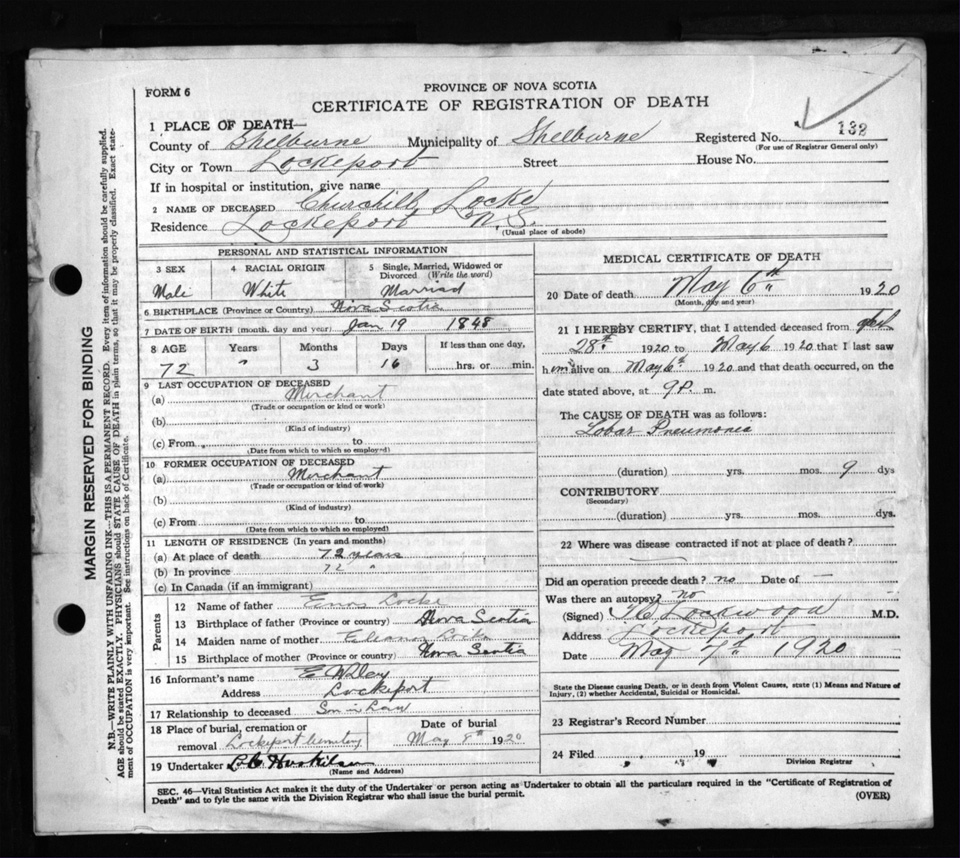 FORM 6
PROVINCE OF NOVA SCOTIA
CERTIFICATE OF REGISTRATION OF DEATH
1 PLACE OF DEATH—
County of Shelburne Municipality of Shelburne Registered No. 132
(For use of Registrar General only)
City or Town Lockeport Street House No.
If in hospital or institution, give name
2 NAME OF DECEASED Churchill Locke
Residence Lockeport N.S.
(Usual place of abode)
PERSONAL AND STATISTICAL INFORMATION
3 SEX 4 RACIAL ORIGIN 5 Single, Married, Widowed or Divorced (Write the word)
Male White Married
6 BIRTHPLACE (Province or Country) Nova Scotia
7 DATE OF BIRTH (month, day and year) Jan 19 1848
8 AGE Years Months Days If less than one day,
72 " 3 16 hrs. or min.
9 LAST OCCUPATION OF DECEASED
(a) Merchant
(Trade or occupation or kind or work)
(b)
(Kind of industry)
(c) From to
(Date from which to which so employed)
10 FORMER OCCUPATION OF DECEASED
(a) Merchant
(Trade or occupation or kind of work)
(b)
(Kind of industry)
(c) From to
(Date from which to which so employed)
11 LENGTH OF RESIDENCE (In years and months)
(a) At place of death 72 years
(b) In province 72 "
(c) In Canada (if an immigrant)
Parents
12 Name of father Enos Locke
13 Birthplace of father (Province or country) Nova Scotia
14 Maiden name of mother Eleanor Locke
15 Birthplace of mother (Province or country) Nova Scotia
16 Informant's name E Wiley
Address Lockeport
17 Relationship to deceased Son in Law
18 Place of burial, cremation or removal Lockeport Cemetery
Date of burial
May 8th 1920
19 Undertaker
(Name and Address)
MEDICAL CERTIFICATE OF DEATH
20 Date of death May 6th 1920
(Month, day and year)
21 I HEREBY CERTIFY, that I attended deceased from
28th 1920 to May 6 1920 that I last saw
him alive on May 6th 1920 and that death occurred, on the
date stated above, at 9 P. m.
The CAUSE OF DEATH was as follows:
Lobar Pneumonia
(duration) yrs. mos. 9 dys
CONTRIBUTORY
(Secondary)
(duration) yrs. mos. dys.
22 Where was disease contracted if not at place of death?
Did an operation precede death? no Date of —
Was there an autopsy? no
(Signed) Lockwood M.D.
Address Lockeport
Date May 7th 1920
State the Disease causing Death, or in death from Violent Causes, state (1) Means and Nature of
Injury, (2) whether Accidental, Suicidal or Homicidal.
23 Registrar's Record Number
24 Filed 19
Division Registrar
SEC. 46—Vital Statistics Act makes it the duty of the Undertaker or person acting as Undertaker to obtain all the particulars required in the "Certificate of Registration of
Death" and to fyle the same with the Division Registrar who shall issue the burial permit.
(OVER)
MARGIN RESERVED FOR BINDING
N.B.—WRITE PLAINLY WITH UNFADING INK—THIS IS A PERMANENT RECORD. Every item of information should be carefully supplied.
AGE should be stated EXACTLY. PHYSICIANS should STATE CAUSE OF DEATH in plain terms, so that it may be properly classified. Exact state-
ment of OCCUPATION is very important. See instructions on back of Certificate.